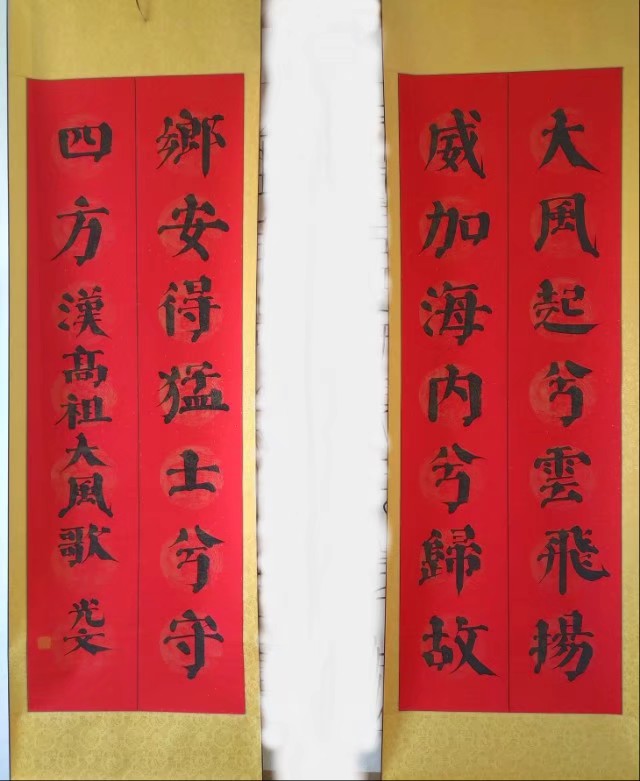 大風起兮雲飛揚
威加海内兮歸故
鄉安得猛士兮守
四方漢高祖大風歌
光文